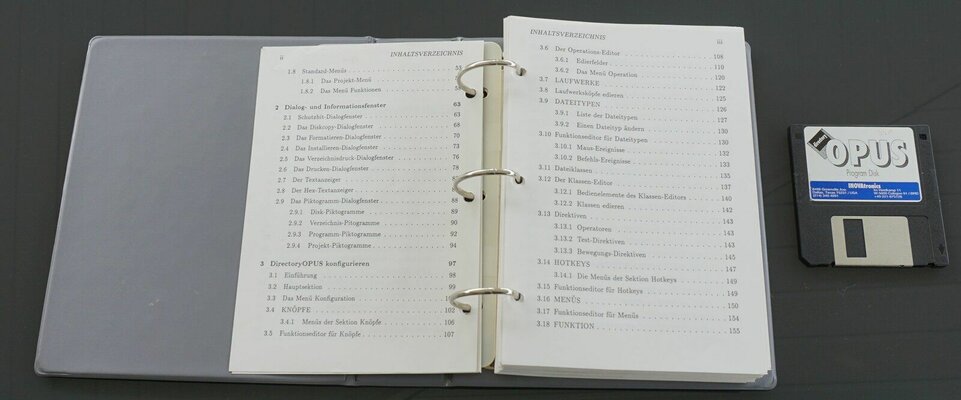 ii INHALTSVERZEICHNIS
1.8 Standard-Menüs 53
1.8.1 Das Projekt-Menü
1.8.2 Das Menü Funktionen
2 Dialog- und Informationsfenster 63
2.1 Schutzbit-Dialogfenster 63
2.2 Das Diskcopy-Dialogfenster 68
2.3 Das Formatieren-Dialogfenster 70
2.4 Das Installieren-Dialogfenster 73
2.5 Das Verzeichnisdruck-Dialogfenster 76
2.6 Das Drucken-Dialogfenster 78
2.7 Der Textanzeiger
2.8 Der Hex-Textanzeiger
2.9 Das Piktogramm-Dialogfenster 88
2.9.1 Disk-Piktogramme 89
2.9.2 Verzeichnis-Pitogramme 90
2.9.3 Programm-Piktogramme 92
2.9.4 Projekt-Piktogramme 94
3 DirectoryOPUS konfigurieren 97
3.1 Einführung 98
3.2 Hauptsektion 99
3.3 Das Menü Konfiguration
3.4 KNÖPFE 102
3.4.1 Menüs der Sektion Knöpfe 106
3.5 Funktionseditor für Knöpfe 107
INHALTSVERZEICHNIS iii
3.6 Der Operations-Editor 108
3.6.1 Edierfelder 110
3.6.2 Das Menü Operation 120
3.7 LAUFWERKE 122
3.8 Laufwerksköpfe edieren 125
3.9 DATEITYPEN 126
3.9.1 Liste der Dateitypen 127
3.9.2 Einen Dateityp ändern 130
3.10 Funktionseditor für Dateitypen 130
3.10.1 Maus-Ereignisse 132
3.10.2 Befehls-Ereignisse 133
3.11 Dateiklassen 135
3.12 Der Klassen-Editor 137
3.12.1 Bedienelemente des Klassen-Editors 140
3.12.2 Klassen edieren 142
3.13 Direktiven 143
3.13.1 Operatoren 143
3.13.2 Test-Direktiven 145
3.13.3 Bewegungs-Direktiven 147
3.14 HOTKEYS 149
3.14.1 Die Menüs der Sektion Hotkeys 149
3.15 Funktionseditor für Hotkeys 149
3.16 MENÜS 150
3.17 Funktionseditor für Menüs 154
3.18 FUNKTION 155
Directory
OPUS
Program Disk
INOVAtronics